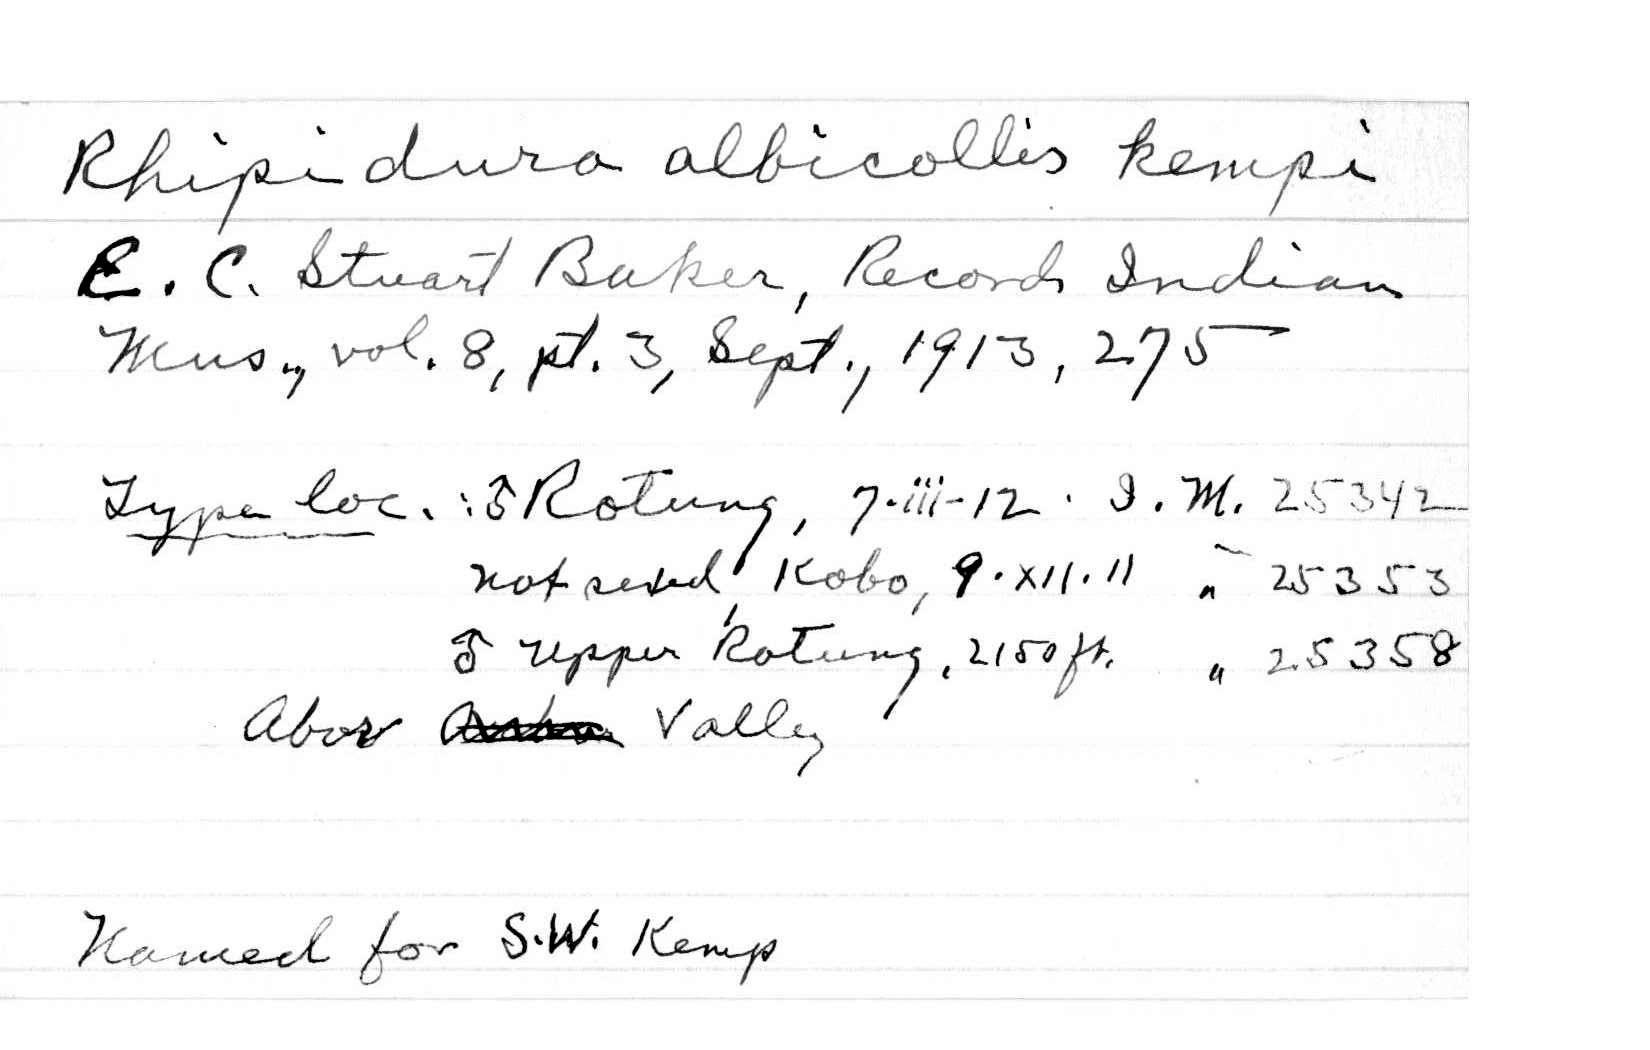 Rhipidura albicollis kempi
E. C. Stuart Baker, Records Indian
Mus., vol. 8, pt. 3, Sept., 1913, 275
Type loc. : ♂ Rotung, 7-iii-12. I. M. 25342
not sexed, Kobo, 9.XII.11 " 25353
♂ Upper Rotung, 2150 ft. " 25358
Abor Valley
Named for S.W. Kemp